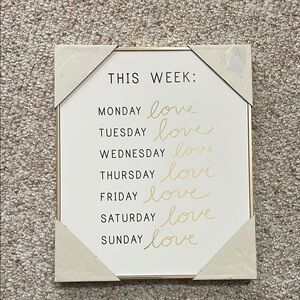 THIS WEEK:
MONDAY love
TUESDAY love
WEDNESDAY love
THURSDAY love
FRIDAY love
SATURDAY love
SUNDAY love